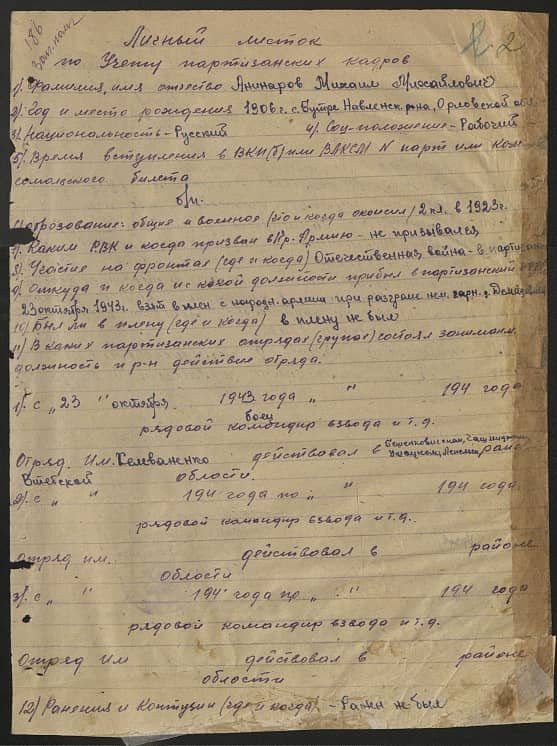 186
Личный листок
2
по Учету партизанских кадров
1) Фамилия, имя отчество Анинаров Михаил Михайлович
2) Год и место рождения 1906 г. с. Бутре Навленск. р-на, Орловской обл.
3) Национальность - Русский 4) Соц-положение - Рабочий
5) Время вступления в ВКП(б) или ВЛКСМ N парт или Ком-
сомольского билета
б/п.
образование: общие и военное (что и когда окончил) 2 кл. в 1923 г.
7) Каким РВК и когда призван в Кр. Армию - не призывался
8) Участие на фронтах (где и когда) Отечественная война - в партизан
9) Откуда и когда и с какой должности прибыл в партизанский
23 октября 1943 г. взят в плен с народн. армии при разгроме нем. гарн. д.
10) Был ли в плену (где и когда) в плену не был
11) В каких партизанских отрядах (групах) состоял занимаем.
должность и р-н действие отряда.
1) с „23" октября 1943 года „ " 194 года
боец
рядовой командир взвода и т.д.
Отряд им. действовал в районе
Витебской области.
2) с „ " 194 года по „ " 194 года
рядовой командир взвода и т.д.
отряд им. действовал в районе
области
3) с „ " 194 года по „ " 194 года
рядовой командир взвода и т.д.
Отряд им действовал в районе
области
12) Ранения и Контузии (где и когда) - Ранен не был